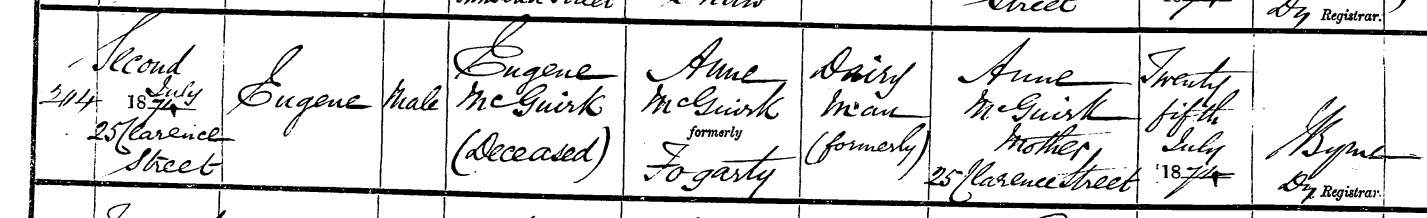 Street
Dy Registrar.
204
Second
July
1874
25 Clarence
Street
Eugene
Male
Eugene
McGuirk
(Deceased)
Anne
McGuirk
formerly
Fogarty
Dairy
man
(formerly)
Anne
McGuirk
Mother,
25 Clarence Street
Twenty
fifth
July
1874
JByrne
Dy Registrar.